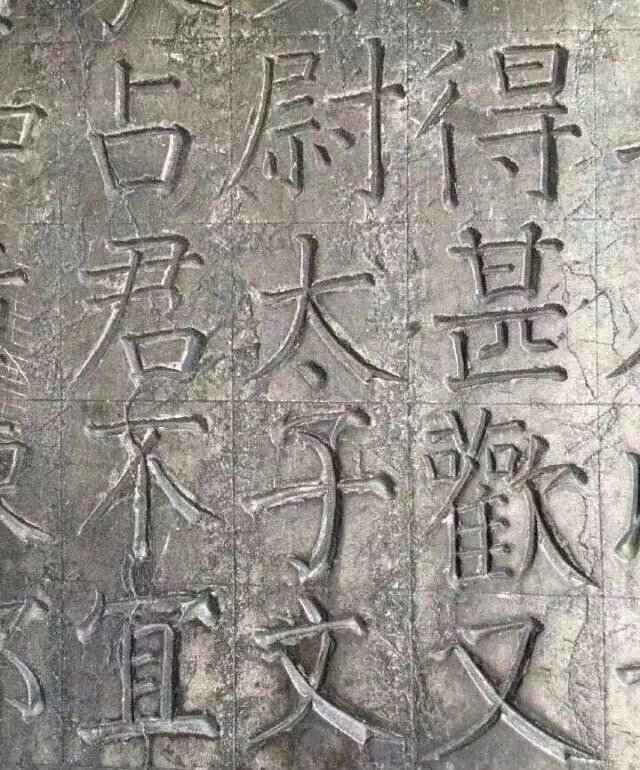 得甚歡又
尉太子文
占君不宜